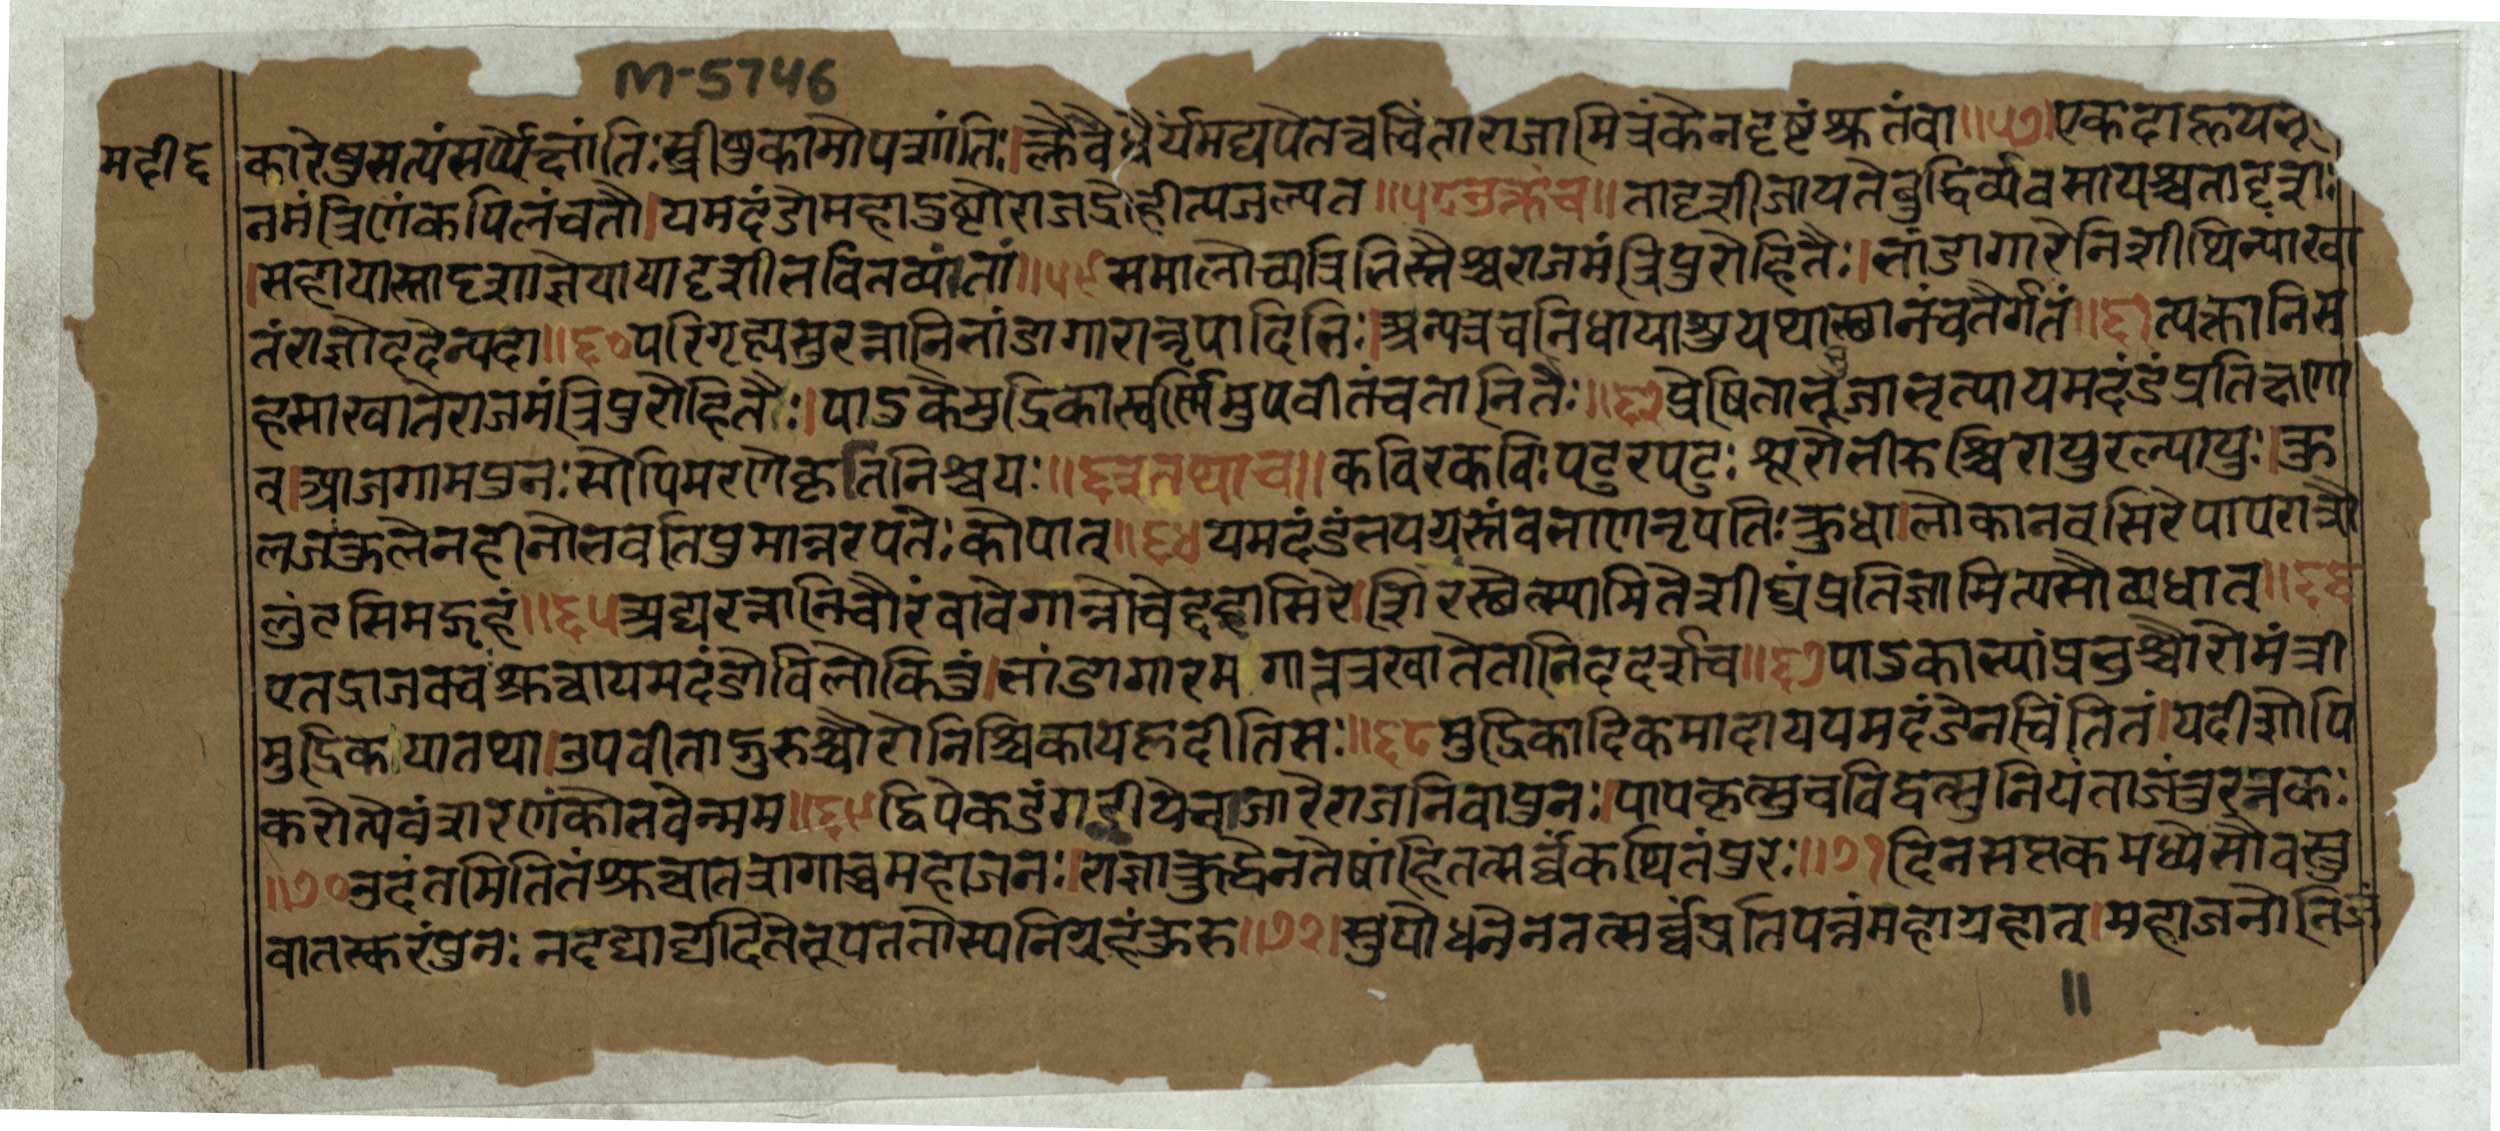 M-5746
मदीद्द
कारेषुसत्यंसर्प्पेक्षांतिःस्त्रीषुकामोपशांतिः।क्लैवेधैर्यंमद्यपेतत्वचिंताराजामित्रंकेनदृष्टंश्रुतंवा॥५७।एकदाहूयनू
नमंत्रिणंकपिलंचतौ।यमदंडोमहादुष्टोराजद्रोहीत्यजल्पत॥५८उक्तंच॥तादृशीजायतेबुद्धिर्व्यवसायश्चतादृशः
।सहायास्तादृशाज्ञेयायादृशीभवितव्यता॥५९समालोच्यत्रिभिस्तैश्चराजमंत्रिपुरोहितैः।भांडागारेनिशीथिन्याखा
तंराज्ञोददेन्यदा॥६०परिगृह्यसुरत्नानिभांडागारान्नृपादिभिः।अन्यत्रचनिधायाशुयथास्थानंचतैर्गतं॥६१त्यक्तानिस
हसाखातेराजमंत्रिपुरोहितैः।पाडकेमुद्रिकास्वर्णमुपवीतंचतानितैः॥६२प्रेषिताभूभुजाभृत्यायमदंडंप्रतिक्षणा
त्।आजगामपुनःसोपिमरणेकृतनिश्चयः॥६३तथाच॥कविरकविःपटुरपटुःशूरोभीरुश्चिरायुरल्पायुः।कु
लजंकुलेनहीनोभवतिपुमान्नरपतेःकोपात्॥६४यमदंडंतपयस्तंवभाणनृपतिःक्रुधा।लोकानवसिरेपापरात्रौ
लुंटसिमद्गृहं॥६५अद्यरत्नानिचौरंवावेगान्नोचेद्दहासिरे।शिरस्छेत्स्यामितेशीघ्रंप्रतिज्ञामित्यसौव्यधात्॥६६
एतद्राजवचंश्रुत्वायमदंडोविलोकितुं।भांडागारमगात्तत्रखातेतानिददर्शच॥६७पाडकाभ्यांप्रभुश्चौरोमंत्री
मुद्रिकयातथा।उपवीताद्गुरुश्चौरोनिश्चिकायहृदीतिसः॥६८मुद्रिकादिकमादाययमदंडेनचिंतितं।यदीशोपि
करोत्येवंशरणंकोभवेन्मम॥६९द्विपेकडंगरीयेवाजारेराजनिवापुनः।पापकृत्सुचविद्वत्सुनियंताजंतुरत्नकः
॥७०उदंतमितितंश्रुत्वातत्रागाच्चमहाजनः।राज्ञाक्रुद्धेनतेषांहितत्सर्वंकथितंपुरः॥७१दिनसप्तकमध्येसौवस्तु
वातस्करंपुनःनदद्याद्यदितेभूपततोस्यनिग्रहंकुरु।७२।सुयोधनेनतत्सर्वंप्रतिपन्नंमहाग्रहात्।महाजनोनिजं
॥